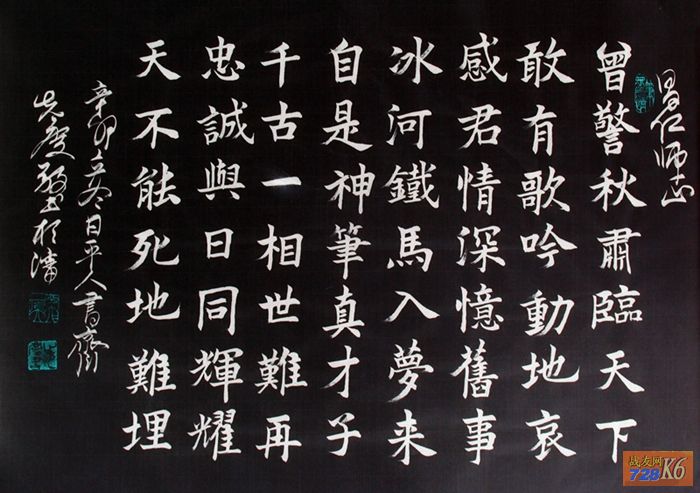 曾警秋肅臨天下
敢有歌吟動地哀
感君情深憶舊事
冰河鐵馬入夢来
自是神筆真才子
千古一相世難再
忠誠與日同輝耀
天不能死地難埋
辛卯立冬日平人書齋
战友网
728K6